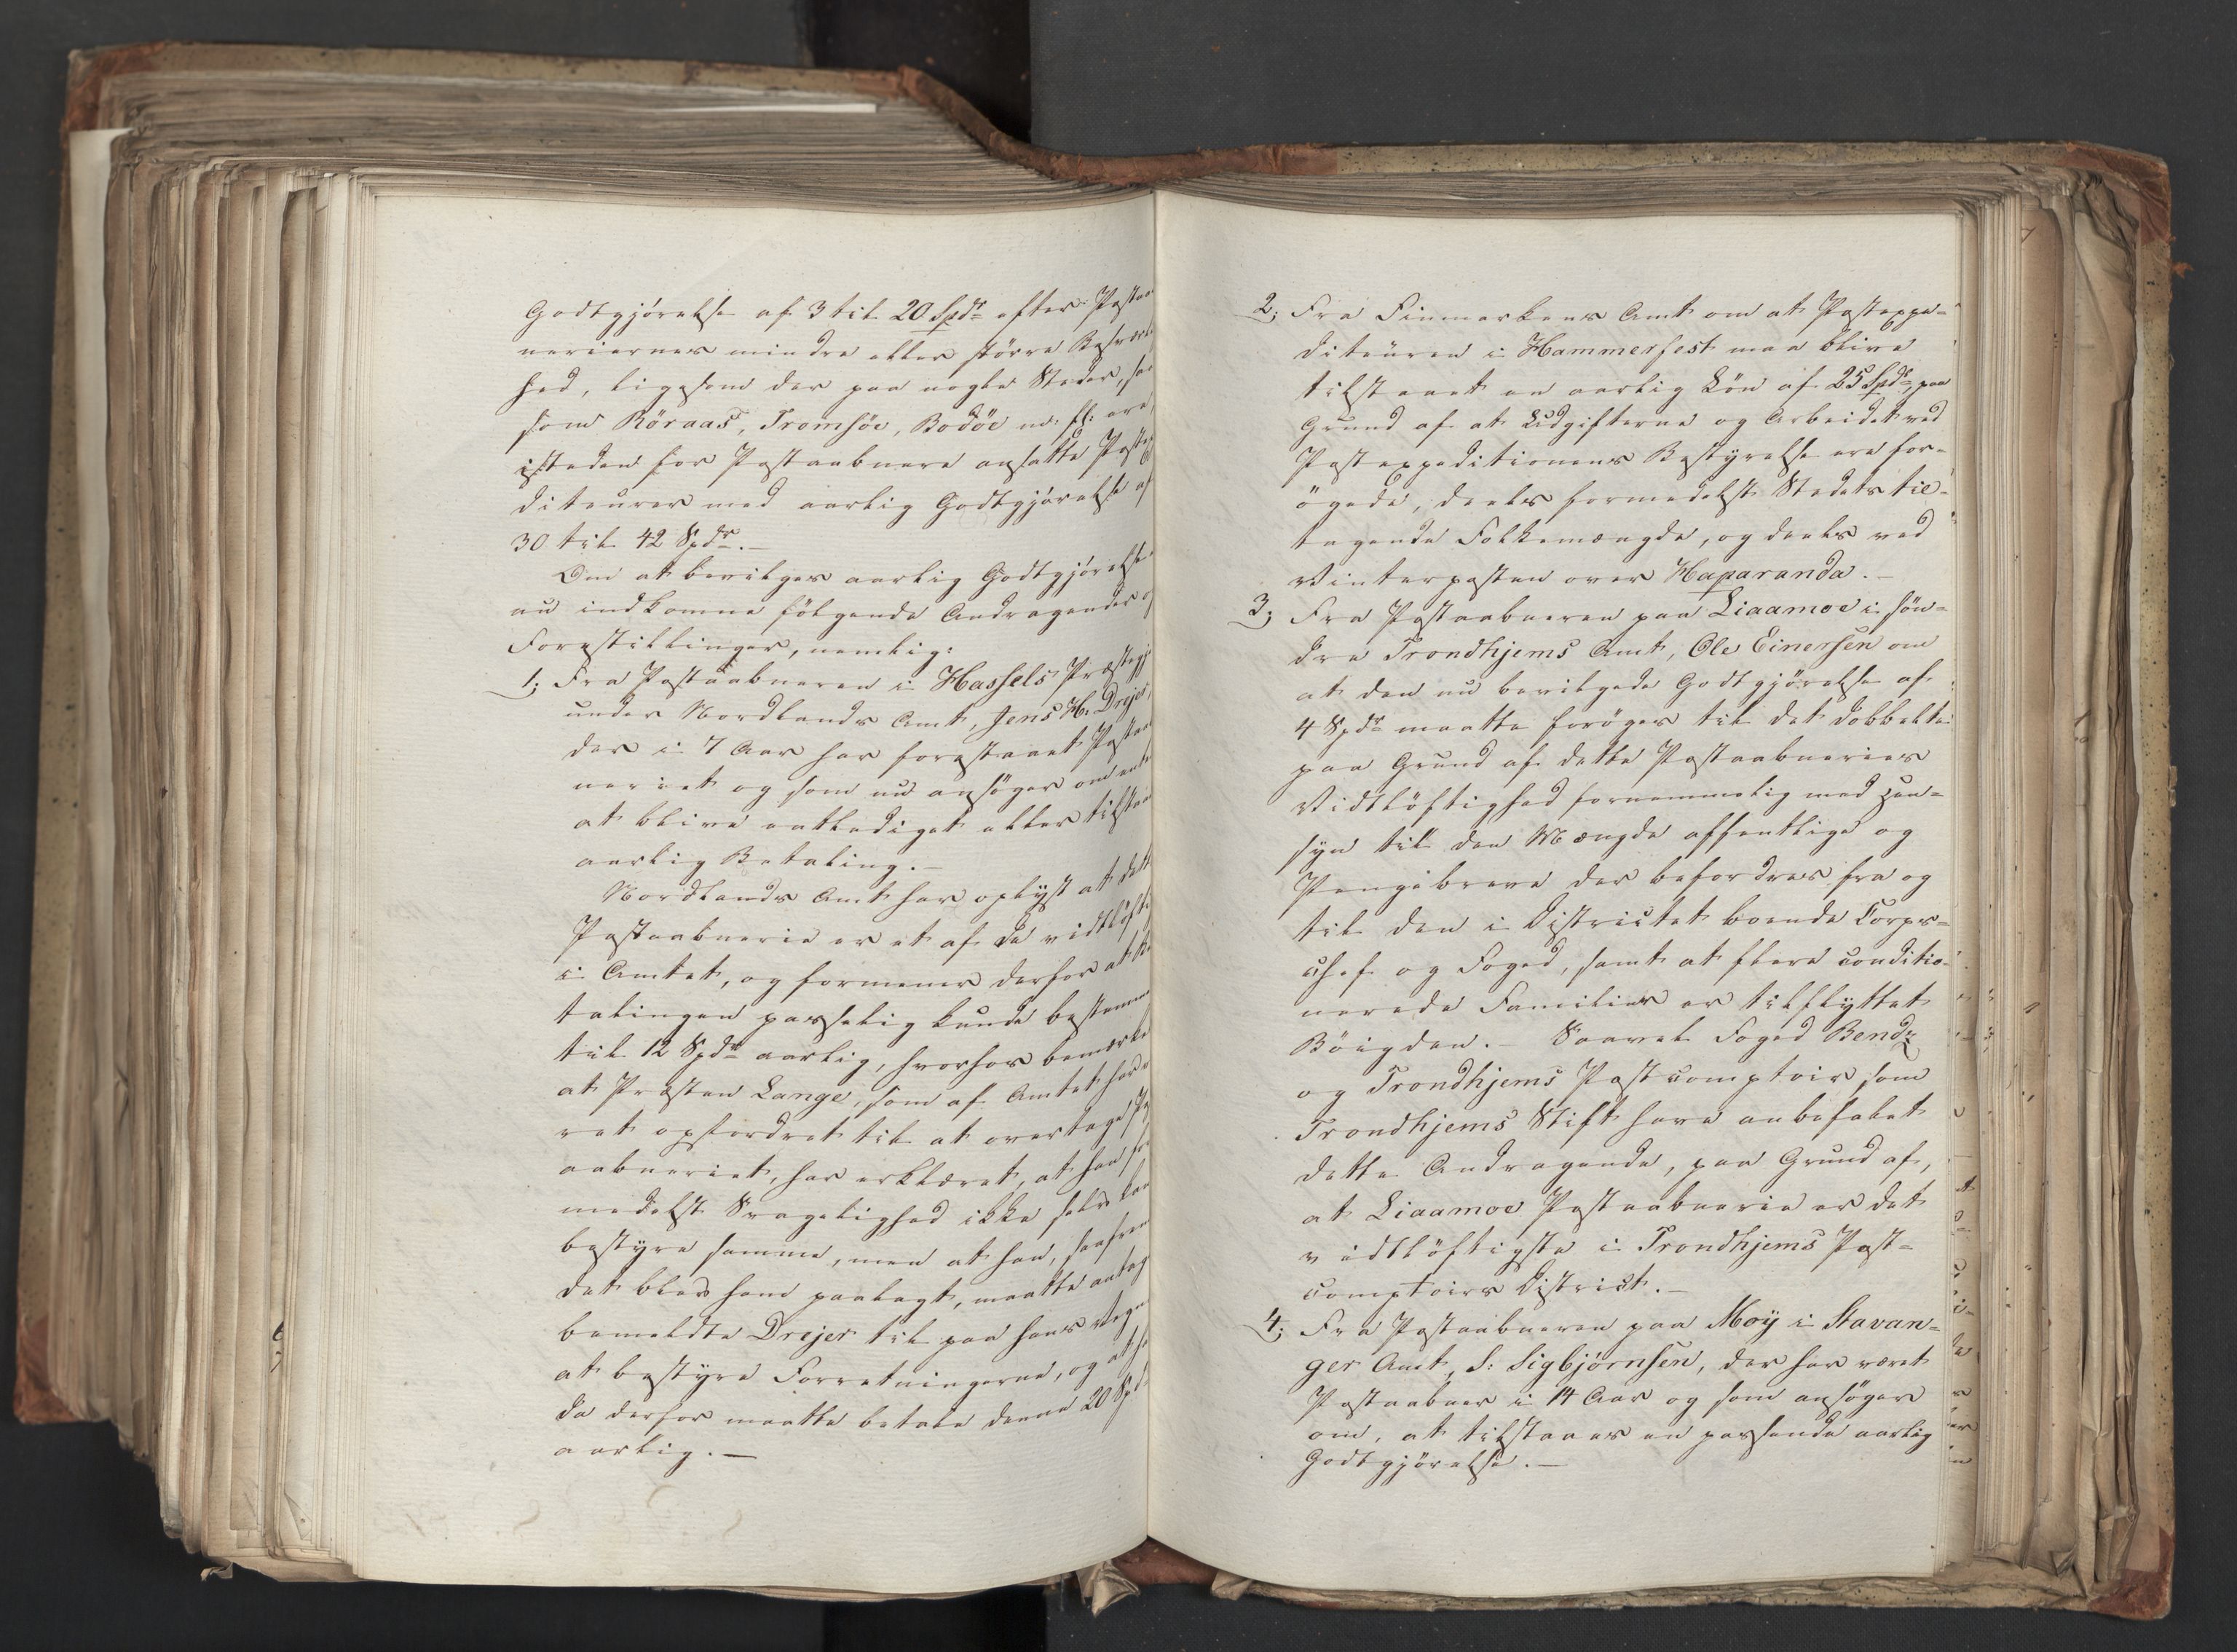 Godtgjörelse af 3 til 20 Spdr efter Postaab
neriernes mindre eller större Besvær
hed, ligesom der paa nogle Steder, saa
som Röraas, Tromsöe, Bodöe m. fl. ere,
istedenfor Postaabnere ansatte Postex
diteurer med aarlig Godtgjörelse af
30 til 42 Spdr. —
Om at bevilges aarlig Godtgjörelse
nu indkomne fölgende Andragender o
Forestillinger, nemlig:
1; Fra Postaabneren i Hassels Præstegj
under Nordlands Amt, Jens H. Drejer,
der i 7 Aar har forestaaet Postaab
neriet og som nu ansöger om ent
at blive entlediget eller tilstaa
aarlig Betaling. —
Nordlands Amt har oplyst at dett
Postaabnerie er et af de vidtlöfti
i Amtet, og formener derfor at Be
talingen passelig kunde bestemme
til 12 Spdr aarlig, hvorhos bemærke
at Præsten Lange, som af Amtet har v
ret opfordret til at overtage Post
aabneriet, har erklæret, at han for
medelst Svagelighed ikke selv kan
bestyre samme, men at han, saafrem
det blev ham paalagt, maatte antag
bemeldte Drejer til paa hans Vegn
at bestyre Forretningerne, og at h
da derfor maatte betale denne 20 Spd
aarlig. —
2; Fra Finmarkens Amt om at Postexpe-
diteuren i Hammerfest maa blive
tilstaaet en aarlig Lön af 25 Spdr, paa
Grund af at Udgifterne og Arbeidet ved
Postexpeditionens Bestyrelse ere for-
ögede, deels formedelst Stedets til-
tagende Folkemængde, og deels ved
Vinterposten over Haparanda. —
3; Fra Postaabneren paa Liaamoe i sön-
dre Trondhjems Amt, Ole Einersen om
at den nu bevilgede Godtgjörelse af
4 Spdr maatte foröges til det dobbelte
paa Grund af dette Postaabneries
Vidtlöftighed fornemmelig med Hen-
syn til den Mængde offentlige og
Pengebreve der befordres fra og
til den i Districtet boende Corps-
chef og Foged, samt at flere conditio-
nerede Familier er tilflyttet
Böigden. — Saavel Foged Bendz
og Trondhjems Postcomptoir som
Trondhjems Stift have anbefalet
dette Andragende, paa Grund af,
at Liaamoe Postaabnerie er det
vidtlöftigste i Trondhjems Post-
comptoirs District. —
4; Fra Postaabneren paa Moÿ i Stavan-
ger Amt, S: Sigbjörnsen, der har været
Postaabner i 14 Aar og som ansöger
om, at tilstaaes en passende aarlig
Godtgjörelse. —